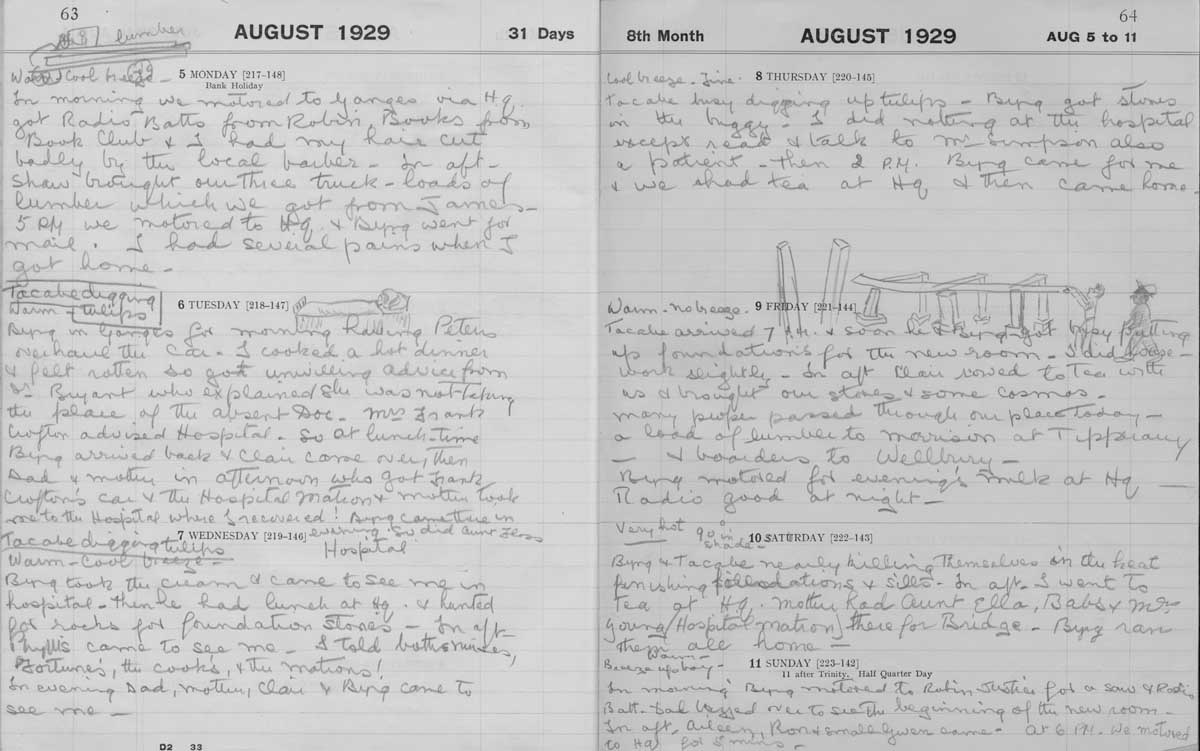 63
lumber
AUGUST 1929
31 Days
Cool breeze
5 MONDAY [217-148]
Bank Holiday
In morning we motored to Ganges via H.q.
got Radio Batts from Robin Books from
Book Club & I had my hair cut
badly by the local barber - In aft-
Shaw brought our three truck-loads of
lumber which we got from James-
5 PM we motored to H.q. & Byng went for
mail. I had several pains when I
got home -
Tacabe digging
tulips
Warm -
6 TUESDAY [218-147]
Byng in Ganges for morning helping Peters
overhaul the car - I cooked a hot dinner
& felt rotten so got unwilling advice from
Dr Bryant who explained she was not taking
the place of the absent Doc - Mrs Frank
Crofton advised Hospital - So at lunch-time
Byng arrived back & Clair came over, then
Dad & mother in afternoon who got Frank
Crofton's car & the Hospital Matron & mother took
me to the Hospital where I recovered! Byng came there in
evening so did Aunt Floss
7 WEDNESDAY [219-146]
Tacabe digging tulips
Hospital
Warm - Cool breeze -
Byng took the cream & came to see me in
hospital - then he had lunch at Hq. & hunted
for rocks for foundation stones - In aft-
Phyllis came to see me - I told both nurses,
fortunes, the cook's, & the matrons!
In evening Dad, mother, Clair & Byng came to
see me -
D2 33
64
8th Month
AUGUST 1929
AUG 5 to 11
Cool breeze - Fine.
8 THURSDAY [220-145]
Tacabe busy digging up tulips - Byng got stones
in the buggy - I did nothing at the hospital
except read & talk to Mr Simpson also
a patient - then 2 P.M. Byng came for me
& we had tea at Hq & then came home -
Warm - no breeze.
9 FRIDAY [221-144]
Tacabe arrived 7 A.M. & soon he & Byng got busy putting
up foundations for the new room - I did house-
work slightly - In aft Clair rowed to Tea with
us & brought our stores & some cosmos -
many people passed through our place today -
a load of lumber to Morrison at Tipperary
- & boarders to Wellbury -
Byng motored for evening's milk at Hq -
Radio good at night -
Very hot 90° in
shade -
10 SATURDAY [222-143]
Byng & Tacabe nearly killing themselves in the heat
finishing foundations & sills - In aft. I went to
Tea at Hq. Mother had Aunt Ella, Babs & Mrs
Young (Hospital Matron) there for Bridge - Byng ran
them all home -
Warm -
Breeze up bay -
11 SUNDAY [223-142]
11 after Trinity. Half Quarter Day
In morning Byng motored to Robin Justice for a saw & Radio
Batt - Dad over to see the beginning of the new room -
In aft. Aileen, Ron & small Gwen came - At 6 PM. We motored
to Hq for 5 mins -